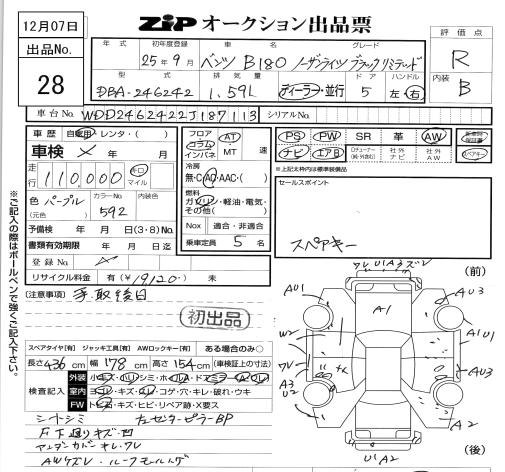 12月07日
ZIP オークション出品票
出品No.
28
年式
初年度登録
車名
グレード
25年9月
ベンツ B180 ノーザンライツブラックリミテッド
型式
排気量
ドア
ハンドル
DBA-246242
1.59L
ディーラー・並行
5
左・右
評価点
R
内装
B
車台No.
WDD2462422J187113
シリアルNo.
車歴 自家用・レンタ・( )
車検 × 年 月
走行
110,000
キロ
マイル
色 パープル
(元色)
カラーNo.
592
内装色
予備検 年 月 日(3・8)No.
書類有効期限 年 月 日迄
登録No.
リサイクル料金 有(¥19120-) 未
フロア
コラム
インパネ
AT
・MT
速
冷房
無・C・AC・AAC・( )
燃料
ガソリン・軽油・電気・
その他( )
Nox 適合・非適合
乗車定員 5 名
PS PW SR 革 AW
ナビ エアB
社外ナビ
社外AW
スペアキー
※上記太枠内は標準装備品
セールスポイント
スペアキー
(注意事項)
手・取後日
初出品
※ご記入の際はボールペンで強くご記入下さい。
スペアタイヤ[有] ジャッキ工具[有] AWロックキー[有] ある場合のみ○
長さ 436 cm 幅 178 cm 高さ 154 cm (車検証の寸法)
検査記入
外装
室内
FW
トビ石・キズ・ヒビ・リペア跡・X要ス
シートシミ
センターピラーBP
下廻りキズ・凹
アンダーカバーキレ・ワレ
AWキズ
(前)
ワレU1A3ズレ
AU1
AU3
A1
W2
A1U1
ワレ
AU3
A3
U2
A2
U1A2
(後)